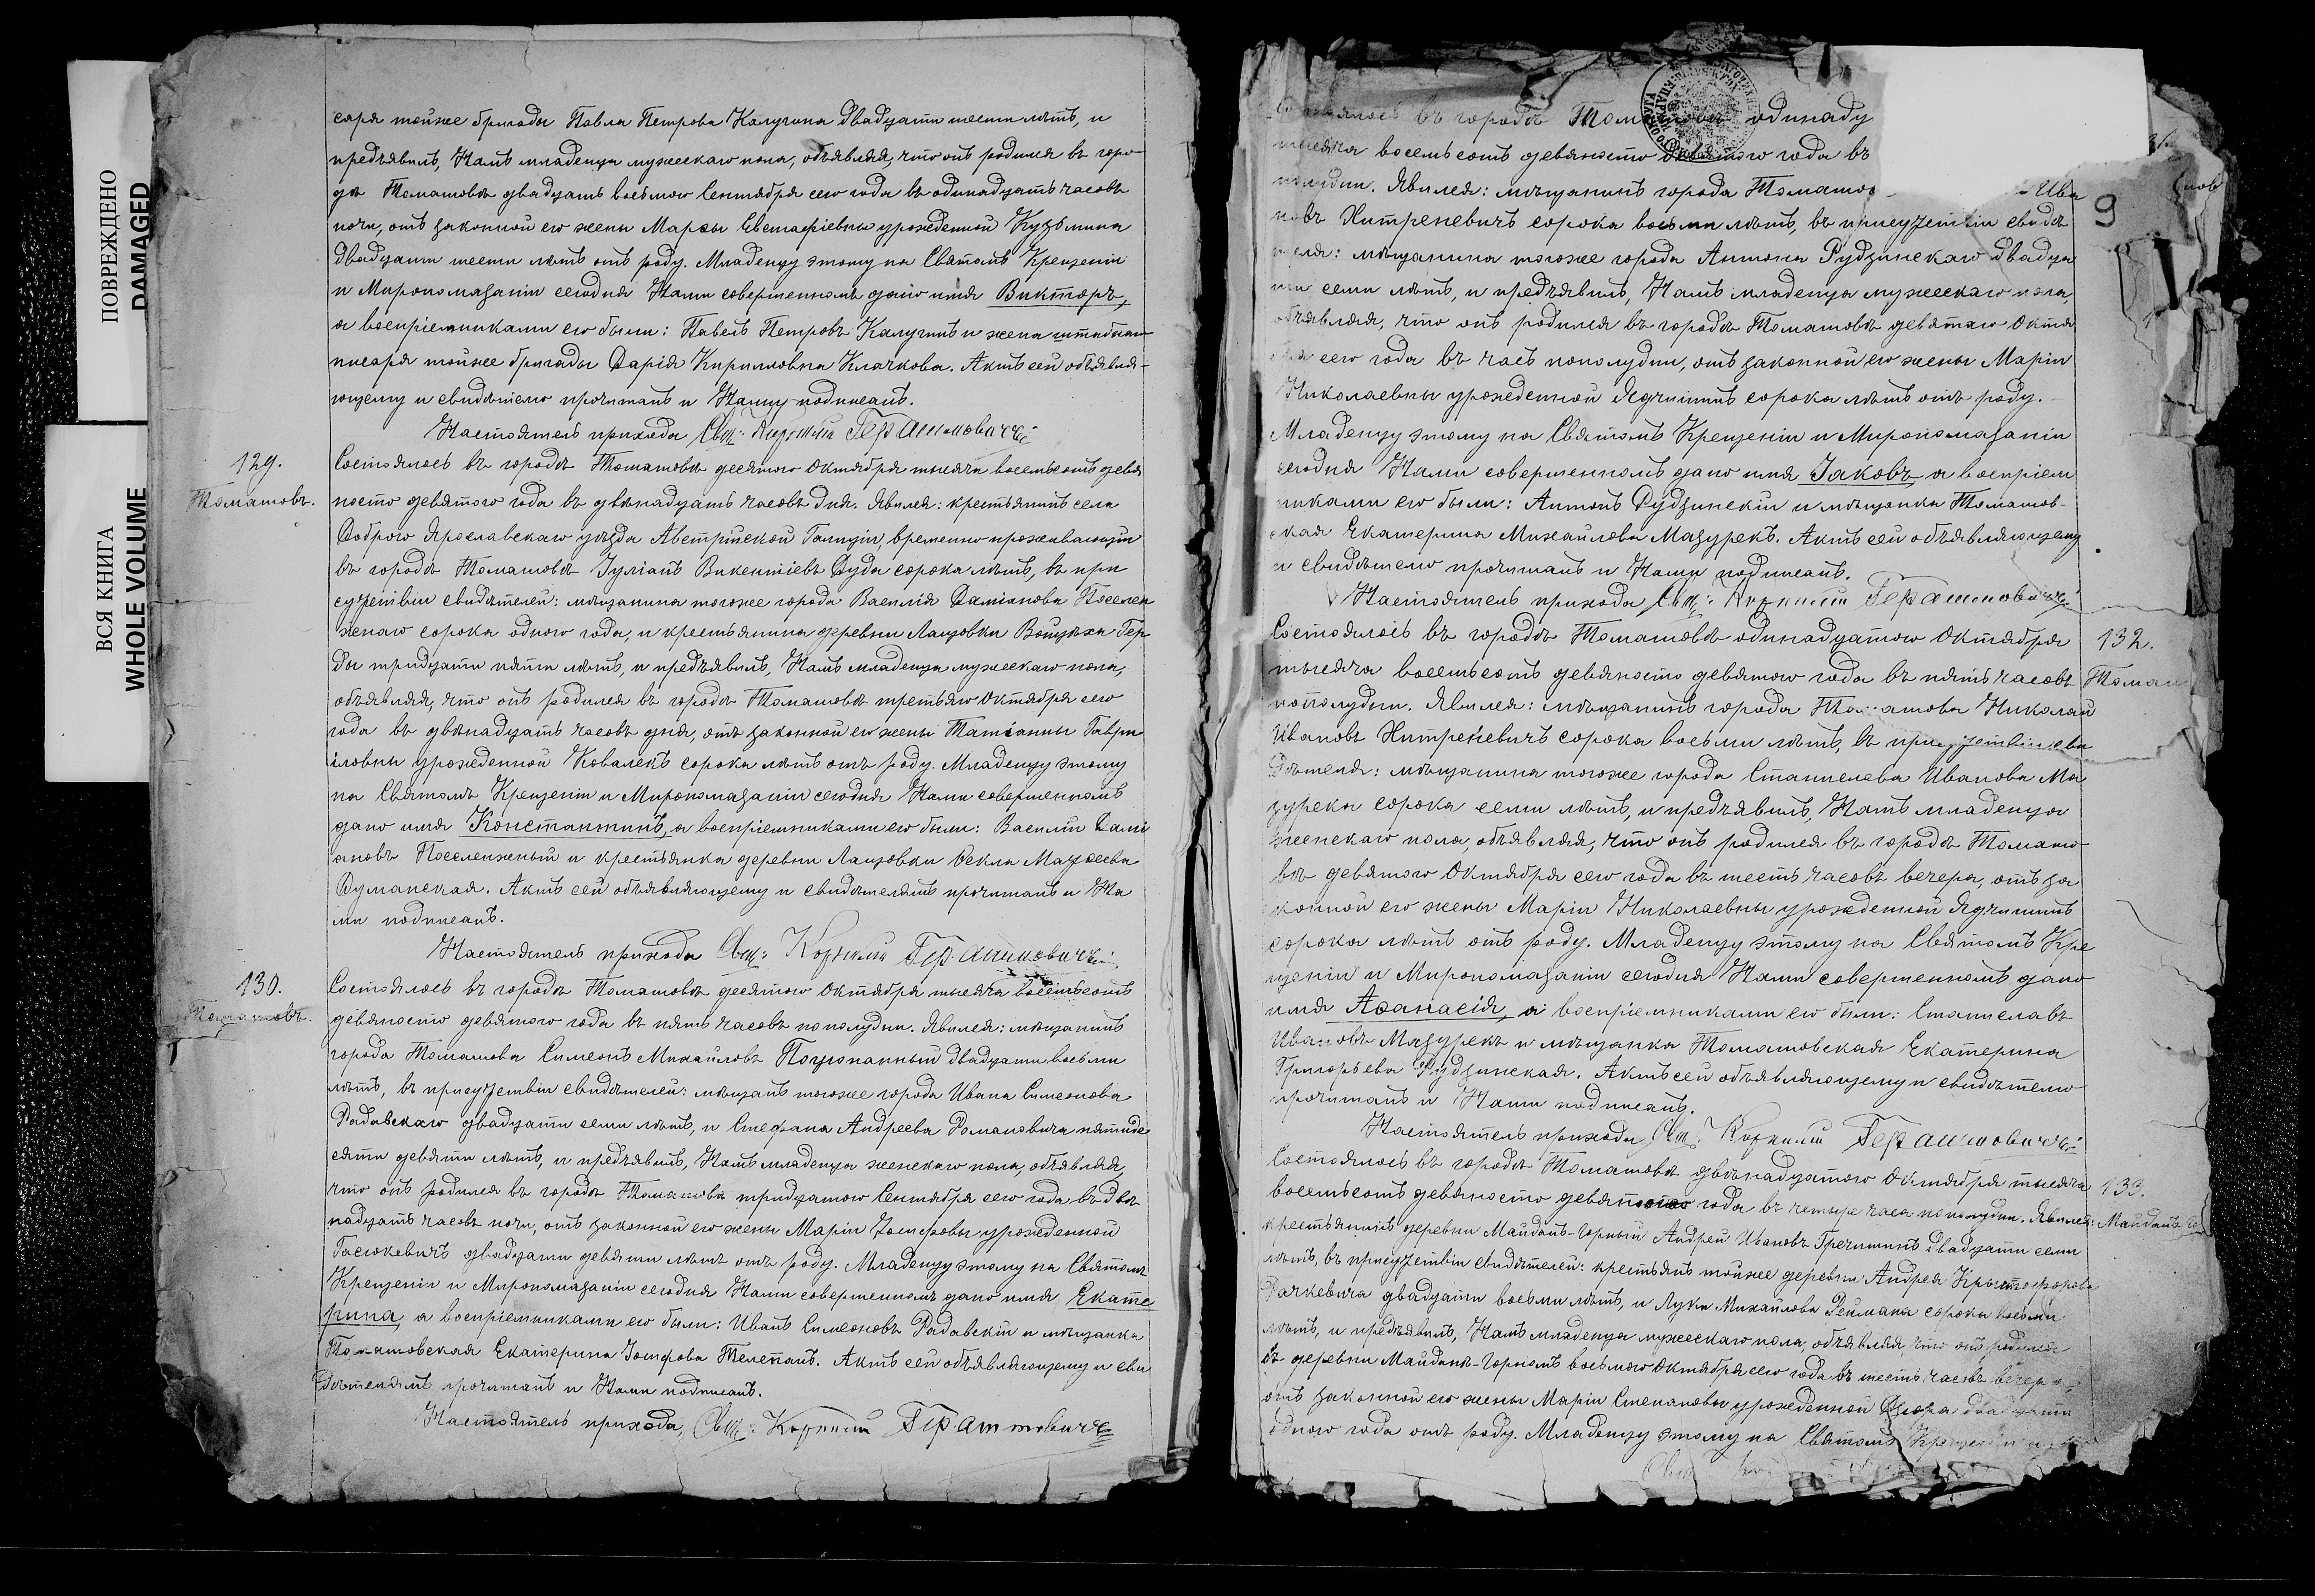 ПОВРЕЖДЕНО
DAMAGED
ВСЯ КНИГА
WHOLE VOLUME
саря тойже бригады Павла Петрова Калугина двадцати шести лѣтъ, и
предъявилъ, Намъ младенца мужескаго пола, объявляя, что онъ родился въ горо-
дѣ Томашовѣ двадцать восьмого Сентября сего года въ одинадцать часовъ
ночи, отъ законной его жены Марѳы Евстафіевны урожденной Кузьмина
двадцати шести лѣтъ отъ роду. Младенцу этому на Святомъ Крещеніи
и Миропомазаніи сегодня Нами совершенномъ дано имя Викторъ,
а воспріемниками его были: Павелъ Петровъ Калугинъ и жена штабнаго
писаря тойже бригады Дарія Кириловна Клачкова. Актъ сей объявля-
ющему и свидѣтелю прочитанъ и Нами подписанъ.
Настоятель прихода Свщ: Корнилій Герашимовичъ
129.
Томашовъ.
Состоялось въ городѣ Томашовѣ десятого Октября тысяча восемьсотъ девя
носто девятого года въ двѣнадцать часовъ дня. Явился: крестьянинъ села
Доброго Ярославскаго уѣзда Австрійской Галиціи, временно проживающій
въ городѣ Томашовѣ Іуліанъ Викентіевъ Дуда сорока лѣтъ, въ при
сутствіи свидѣтелей: мѣщанина тогоже города Василія Даміанова Поселен
женаго сорока одного года, и крестьянина деревни Лащовки Войцѣха Гер
ды тридцати пяти лѣтъ, и предъявилъ, Намъ младенца мужескаго пола,
объявляя, что онъ родился въ городѣ Томашовѣ третьяго Октября сего
года въ двѣнадцать часовъ дня, отъ законной его жены Татіанны Гаври
іловны урожденной Ковалекъ сорока лѣтъ отъ роду. Младенцу этому
на Святомъ Крещеніи и Миропомазаніи сегодня Нами совершенномъ
дано имя Константинъ, а воспріемниками его были: Василій Дамі
ановъ Поселенжный и крестьянка деревни Лащовки Ѳекла Маѳеева
Думанская. Актъ сей объявляющему и свидѣтелямъ прочитанъ и На
ми подписанъ.
Настоятель прихода Свщ: Корнилій Герашимовичъ
130.
Томашовъ.
Состоялось въ городѣ Томашовѣ десятого Октября тысяча восемьсотъ
девяносто девятого года въ пять часовъ пополудни. Явился: мѣщанинъ
города Томашова Симеонъ Михайловъ Поцюпанный двадцати восьми
лѣтъ, въ присутствіи свидѣтелей: мѣщанъ тогоже города Ивана Симеонова
Радавскаго двадцати семи лѣтъ, и Стефана Андреева Романовича пятиде
сяти девяти лѣтъ, и предъявилъ, Намъ младенца женскаго пола, объявляя,
что онъ родился въ городѣ Томашовѣ тридцатого Сентября сего года въ двѣ
надцать часовъ ночи, отъ законной его жены Маріи Іосифовы урожденной
Гасюкевичъ двадцати девяти лѣтъ отъ роду. Младенцу этому на Святомъ
Крещеніи и Миропомазаніи сегодня Нами совершенномъ дано имя Екате
рина, а воспріемниками его были: Иванъ Симеоновъ Радавскій и мѣщанка
Томашовская Екатерина Іосифова Телепанъ. Актъ сей объявляющему и сви
дѣтелямъ прочитанъ и Нами подписанъ.
Настоятель прихода, Свщ: Корнилій Герашимовичъ
Состоялось въ городѣ одинадц
тысяча восемьсотъ девяносто девятого года въ
полудни. Явился: мѣщанинъ города Томашов Ива
новъ Хитреневичъ сорока восьми лѣтъ, въ присутствіи свидѣ
теля: мѣщанина тогоже города Антона Рудзинскаго двадца
ти семи лѣтъ, и предъявилъ, Намъ младенца мужескаго пола,
объявляя, что онъ родился въ городѣ Томашовѣ девятаго Октя
бря сего года въ часъ пополудни, отъ законной его жены Маріи
Николаевны урожденной Ядчишинъ сорока лѣтъ отъ роду.
Младенцу этому на Святомъ Крещеніи и Миропомазаніи
сегодня Нами совершенномъ дано имя Іаковъ, а воспріем
никами его были: Антонъ Рудзинскій и мѣщанка Томашов-
ская Екатерина Михайлова Мазурекъ. Актъ сей объявляющему
и свидѣтелю прочитанъ и Нами подписанъ.
Настоятель прихода Свщ: Корнилій Герашимовичъ
9
132.
Томаш
Состоялось въ городѣ Томашовѣ одинадцатого Октября
тысяча восемьсотъ девяносто девятого года въ пять часовъ
пополудни. Явился: мѣщанинъ города Томашова Николай
Ивановъ Хитреневичъ сорока восьми лѣтъ, въ присутствіи сви
дѣтеля: мѣщанина тогоже города Станислава Иванова Ма
зурека сорока семи лѣтъ, и предъявилъ, Намъ младенца
женскаго пола, объявляя, что онъ родился въ городѣ Томашо-
вѣ девятого Октября сего года въ шесть часовъ вечера, отъ за
конной его жены Маріи Николаевны урожденной Ядчишинъ
сорока лѣтъ отъ роду. Младенцу этому на Святомъ Кре
щеніи и Миропомазаніи сегодня Нами совершенномъ дано
имя Аѳанасія, а воспріемниками его были: Станиславъ
Ивановъ Мазурекъ и мѣщанка Томашовская Екатерина
Григорьева Рудзинская. Актъ сей объявляющему и свидѣтелю
прочитанъ и Нами подписанъ.
Настоятель прихода Свщ: Корнилій Герашимовичъ
133.
Майданъ
Состоялось въ городѣ Томашовѣ двѣнадцатого Октября тысяча
восемьсотъ девяносто девятого года въ четыре часа пополудни. Явился:
крестьянинъ деревни Майданъ-Горный Андрей Ивановъ Гречишинъ двадцати семи
лѣтъ, въ присутствіи свидѣтелей: крестьянъ тойже деревни Андрея Крыштофорова
Рачкевича двадцати восьми лѣтъ, и Луки Михайлова Реймана сорока восьми
лѣтъ, и предъявилъ, Намъ младенца мужескаго пола, объявляя, что онъ родился
въ деревни Майданѣ-Горномъ восьмого Октября сего года въ шесть часовъ вечера,
отъ законной его жены Маріи Степановы урожденной двадцати
одного года отъ роду. Младенцу этому на Святомъ Крещеніи и